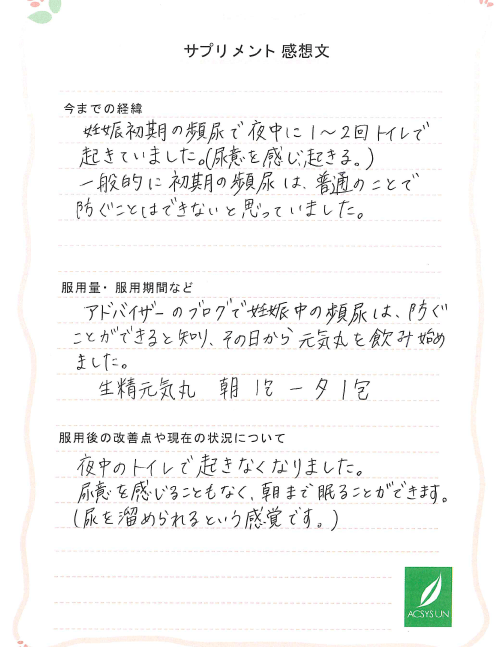 サプリメント 感想文
今までの経緯
妊娠初期の頻尿で夜中に1～2回トイレで
起きていました。(尿意を感じ起きる。)
一般的に初期の頻尿は、普通のことで
防ぐことはできないと思っていました。
服用量・服用期間など
アドバイザーのブログで妊娠中の頻尿は、防ぐ
ことができると知り、その日から元気丸を飲み始め
ました。
生精元気丸 朝1包 ー 夕1包
服用後の改善点や現在の状況について
夜中のトイレで起きなくなりました。
尿意を感じることもなく、朝まで眠ることができます。
(尿を溜められるという感覚です。)
ACSYSUN